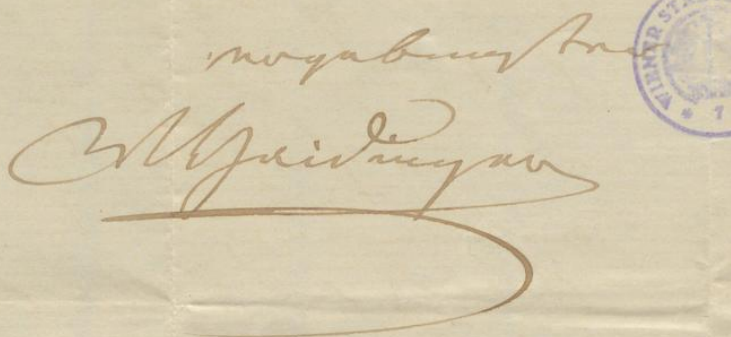 ergebenster
WHaidinger
WIENER ST
* 1